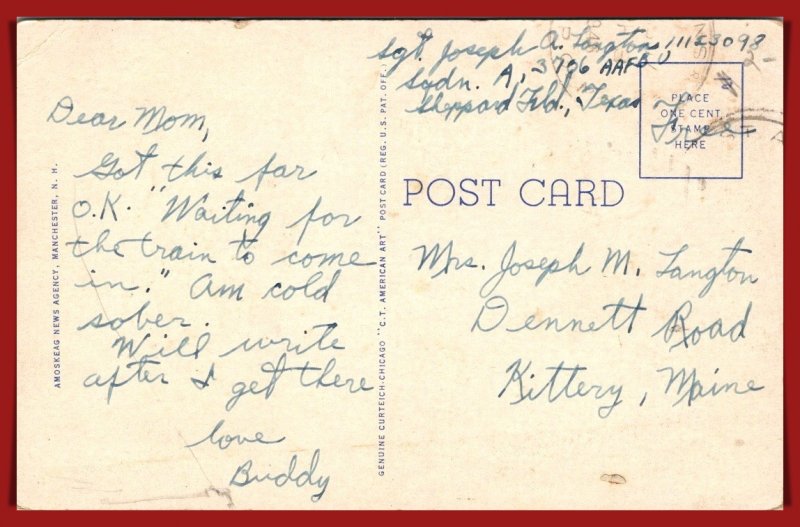 Sgt. Joseph A. Langton 11123098
Sqdn. A, 3706 AAFBU
Sheppard Fld., Texas
Free
PLACE
ONE CENT
STAMP
HERE
Dear Mom,
Got this far
O.K. "Waiting for
the train to come
in." Am cold
sober.
Will write
after I get there
love
Buddy
AMOSKEAG NEWS AGENCY, MANCHESTER, N. H.
GENUINE CURTEICH-CHICAGO "C.T. AMERICAN ART" POST CARD (REG. U.S. PAT. OFF.)
POST CARD
Mrs. Joseph M. Langton
Dennett Road
Kittery, Maine